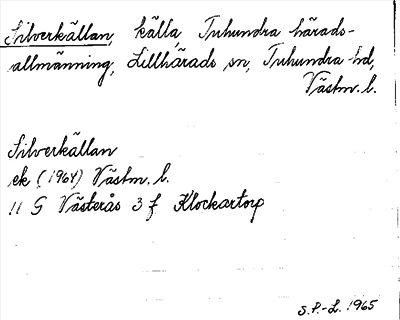 Silverkällan, källa, Tuhundra härads-
allmänning, Lillhärads sn, Tuhundra hd,
Västm. l.
Silverkällan
ek (1964) Västm. l.
11 G Västerås 3 f Klockartorp
S.P.-L. 1965